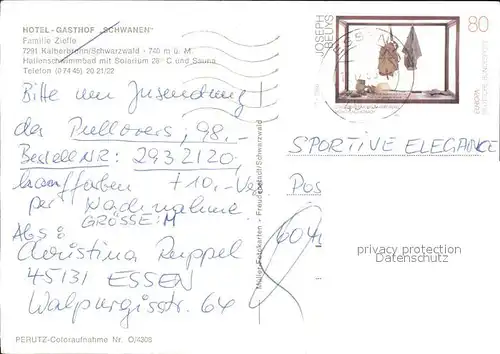 HOTEL - GASTHOF „SCHWANEN"
Familie Ziefle
7291 Kälberbronn/Schwarzwald - 740 m ü. M.
Hallenschwimmbad mit Solarium 28° C und Sauna
Telefon (0 74 45) 20 21/22
Bitte um Zusendung!
des Pullovers, 98,-
Bestell NR: 2932120,
+ 10,-
per Nachnahme
GRÖSSE: M
Abs:
Christina Ruppel
45131 ESSEN
Walpurgisstr. 64
PERUTZ-Coloraufnahme Nr. O/4308
Müller Fotokarten - Freudenstadt/Schwarzwald
JOSEPH
BEUYS
80
EUROPA
DEUTSCHE BUNDESPOST
SPORTIVE ELEGANCE
Pos
privacy protection
Datenschutz